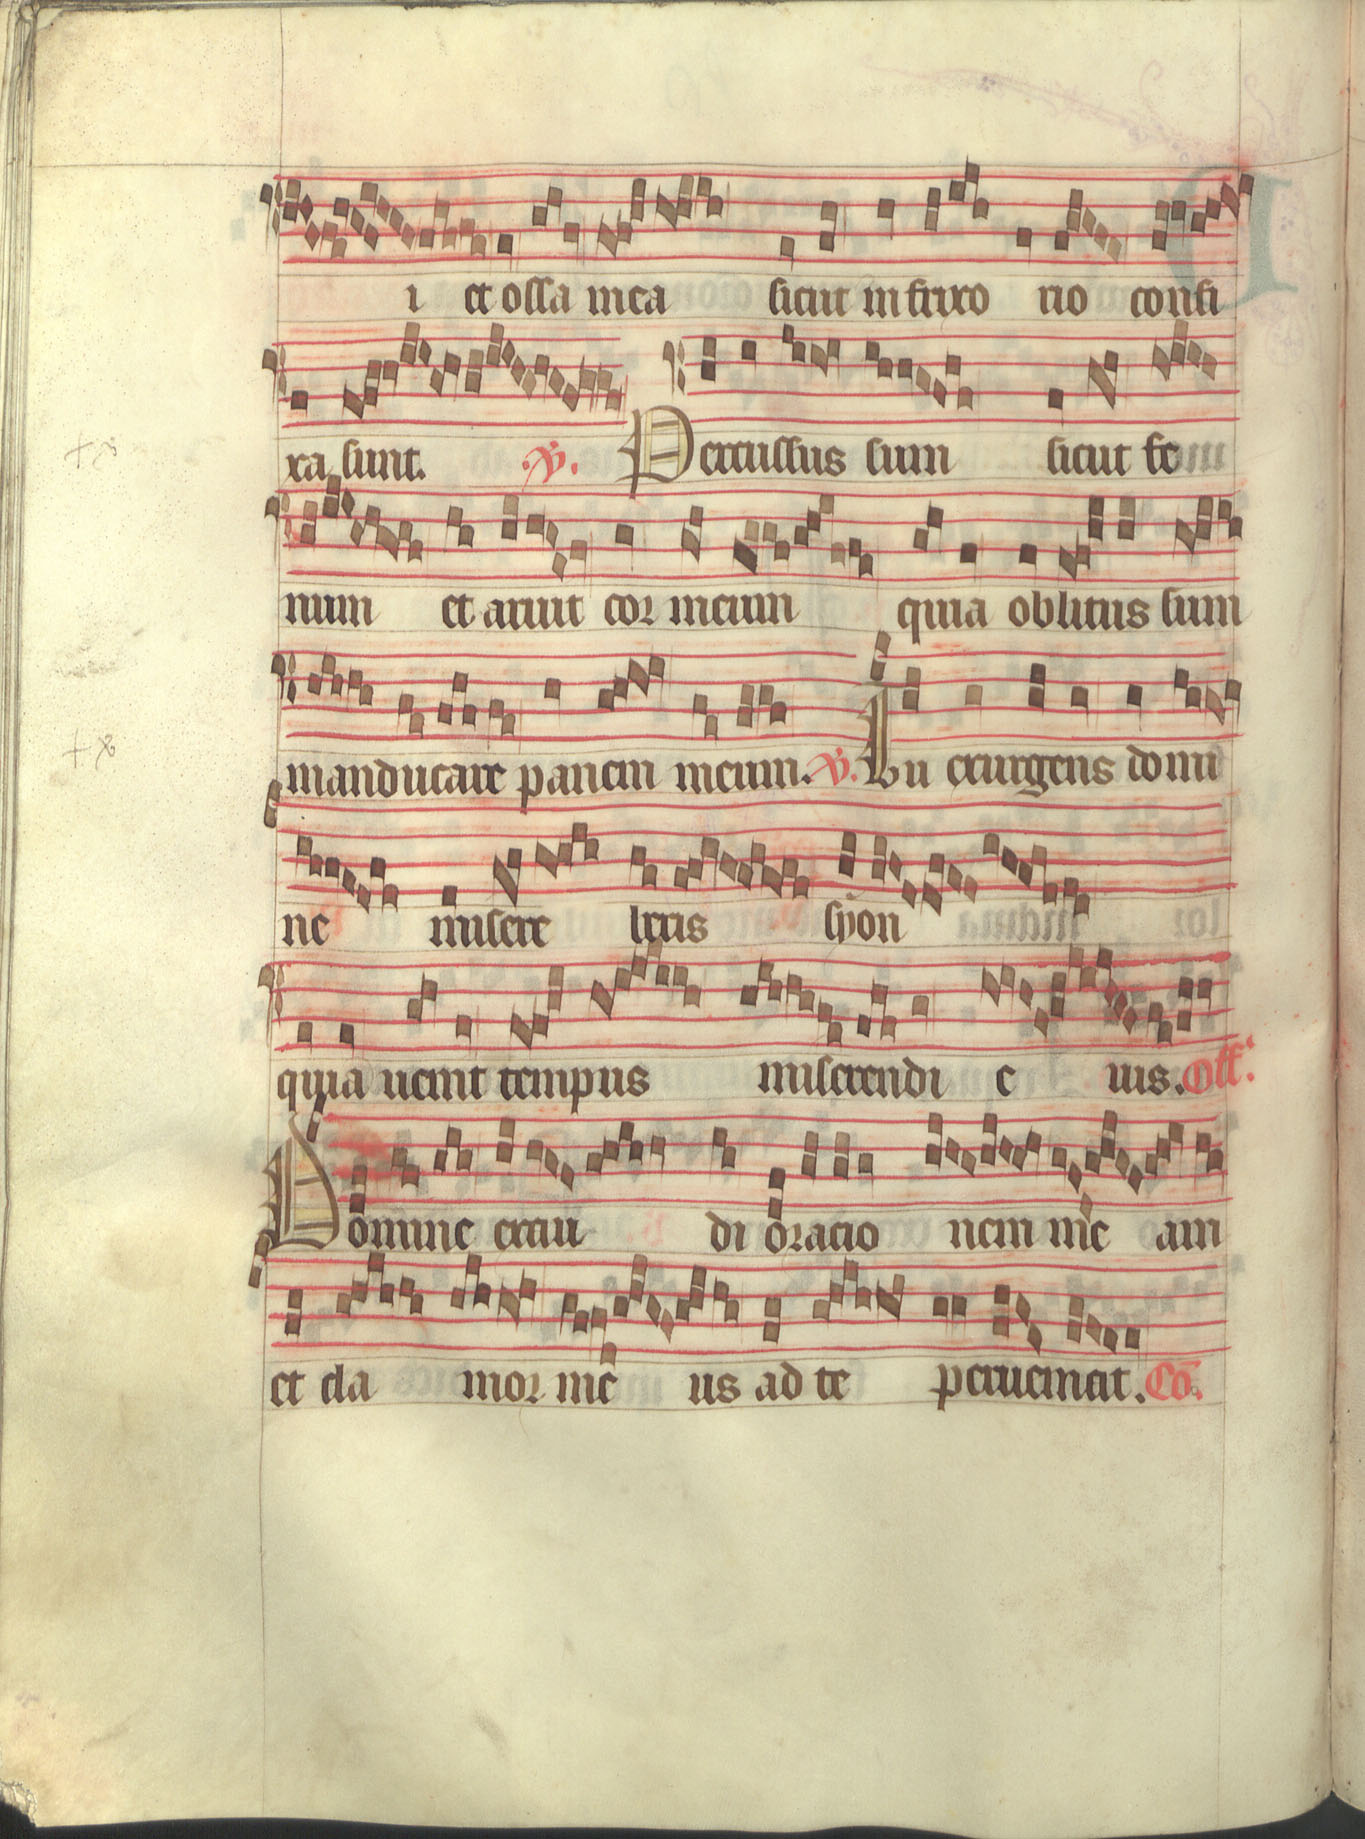 i et ossa mea sicut in frixo rio confi
xa sunt. V. Percussus sum sicut fe
num et aruit cor meum quia oblitus sum
manducare panem meum. V. Tu exurgens domi
ne misere beris syon
quia uenit tempus miserendi e ius. Off.
Domine exau di oracio nem me am
et cla mor me us ad te perueniat. Co.